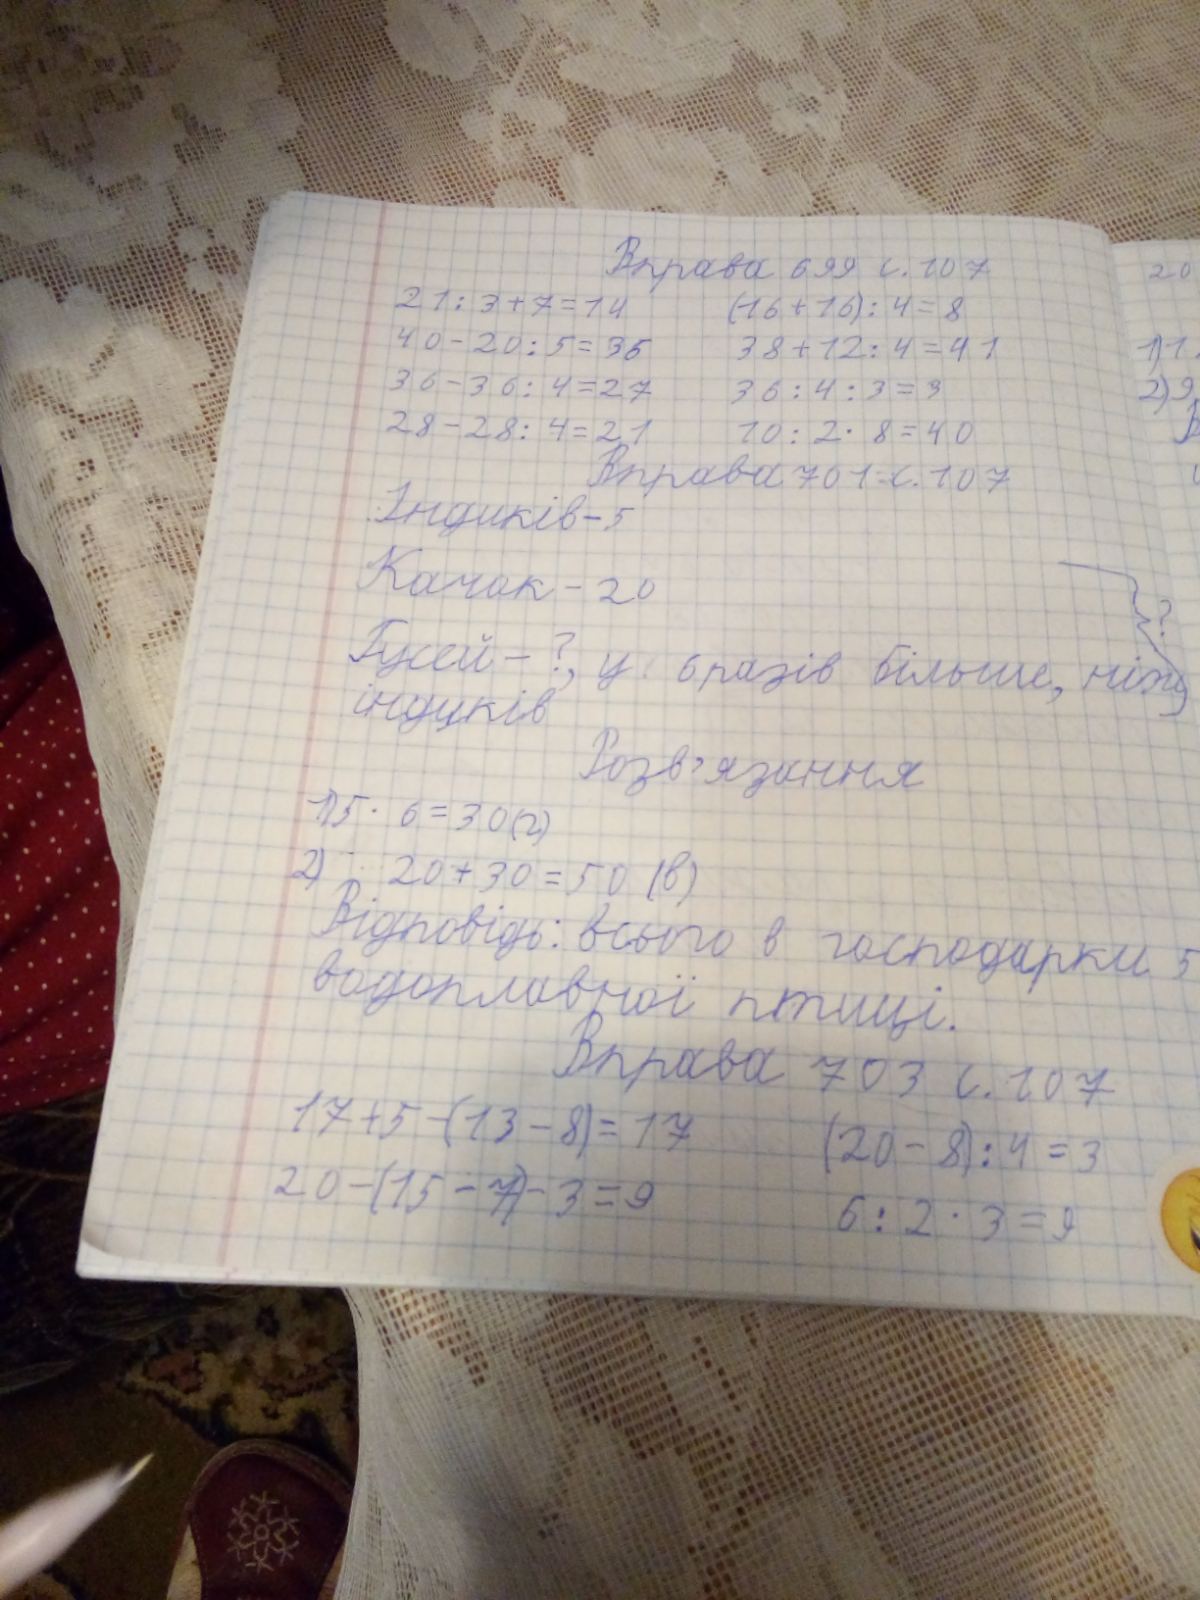 Вправа 699 с. 107
21 : 3 + 7 = 14 (16 + 16) : 4 = 8
40 - 20 : 5 = 36 38 + 12 : 4 = 41
36 - 36 : 4 = 27 36 : 4 : 3 = 3
28 - 28 : 4 = 21 10 : 2 · 8 = 40
Вправа 701 с. 107
Індиків - 5
Качок - 20
?
Гусей - ?, у 6 разів більше, ніж
індиків
Розв'язання
1) 5 · 6 = 30 (г)
2) 20 + 30 = 50 (в)
Відповідь: всього в господарки 5
водоплавної птиці.
Вправа 703 с. 107
17 + 5 - (13 - 8) = 17 (20 - 8) : 4 = 3
20 - (15 - 7) - 3 = 9 6 : 2 · 3 = 9
20
1) 1
2) 9